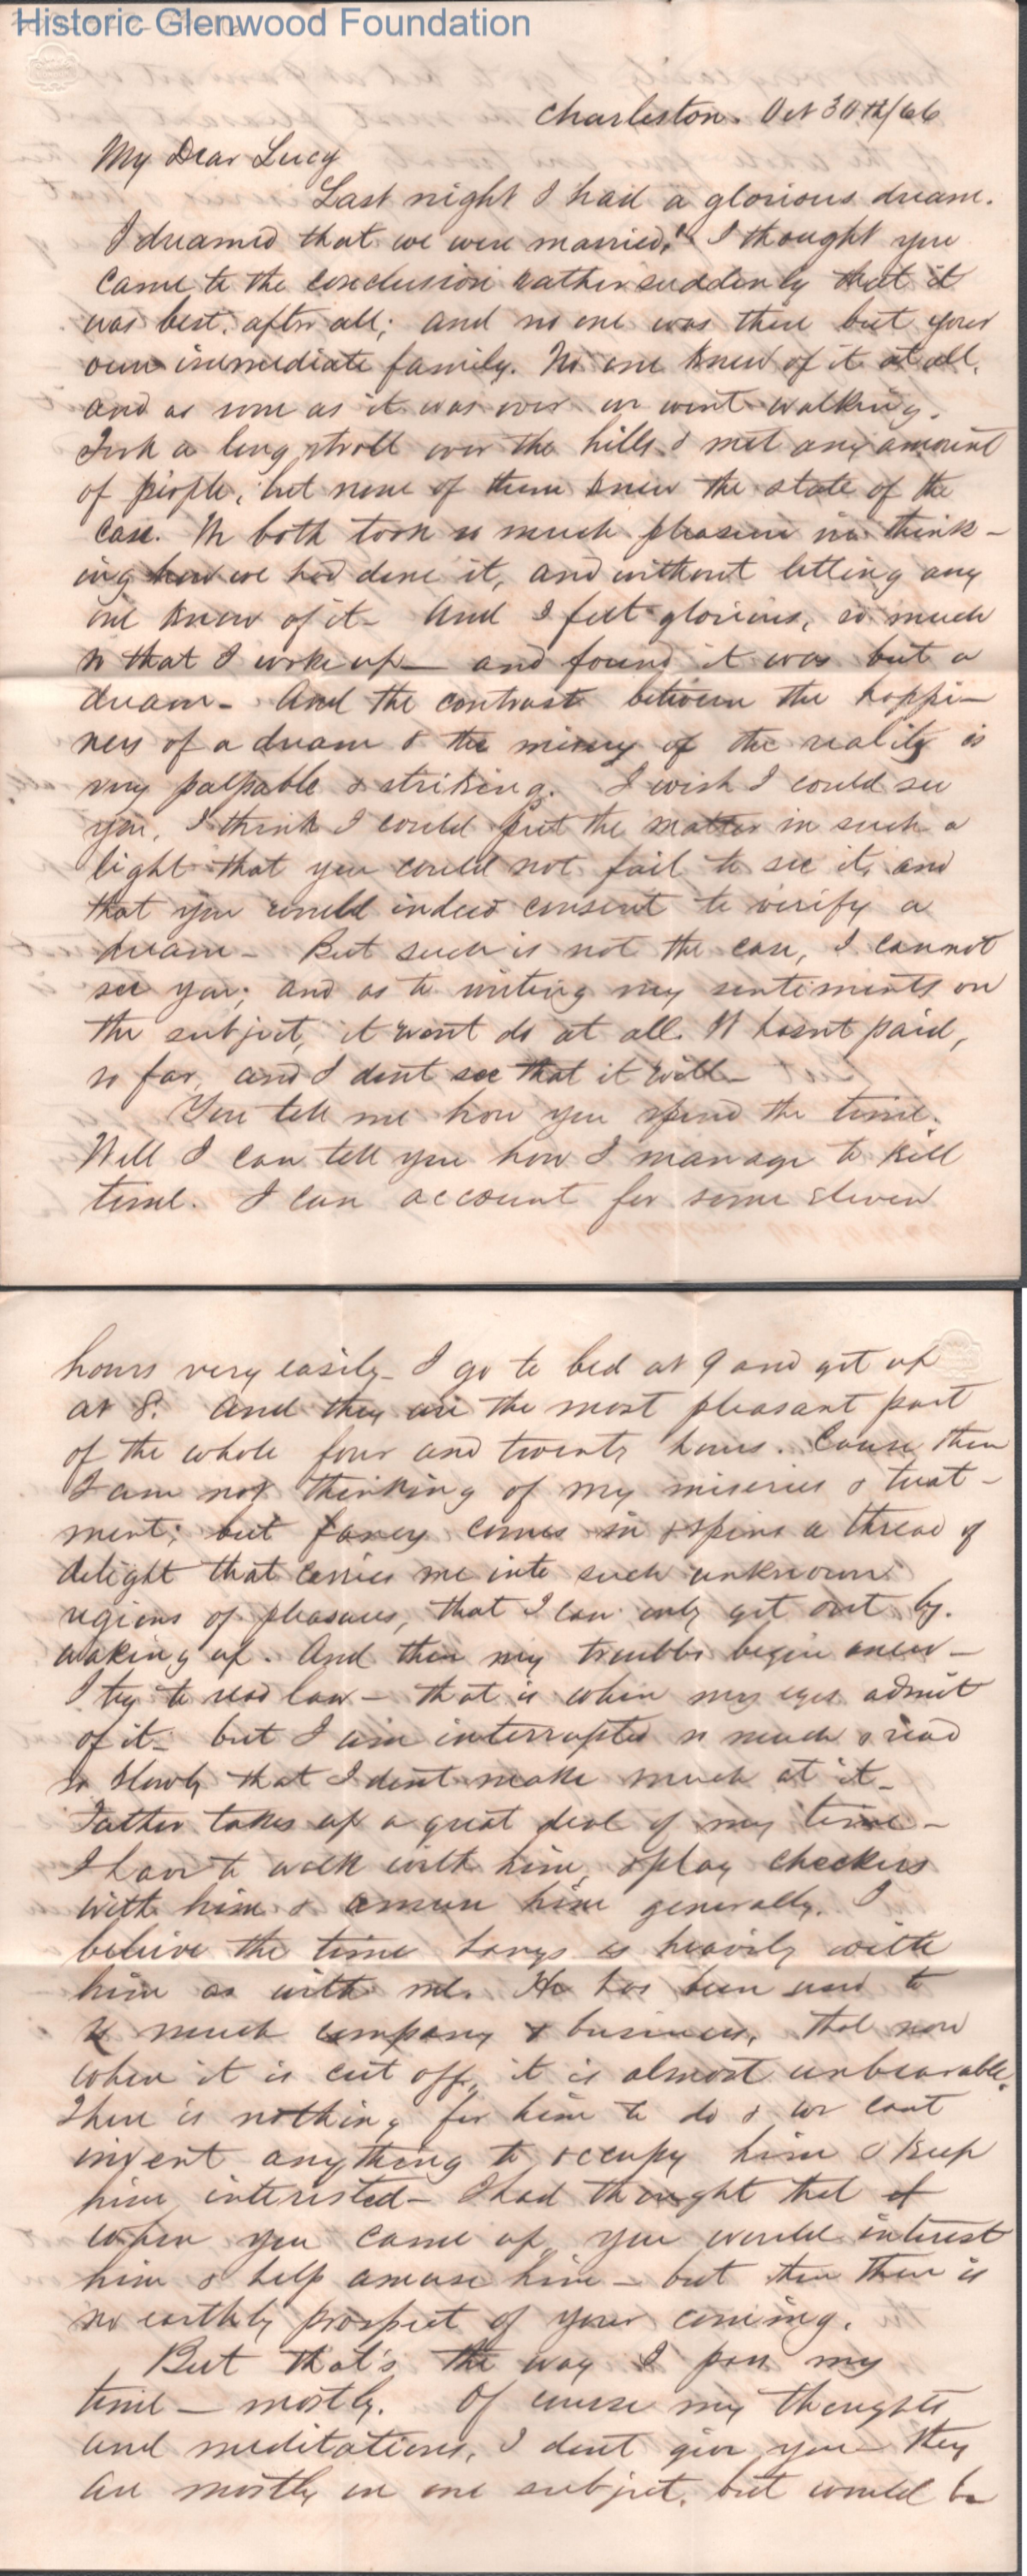 Historic Glenwood Foundation
Charleston. Oct 30th/66
My Dear Lucy
Last night I had a glorious dream.
I dreamed that we were married, I thought you
came to the conclusion rather suddenly that it
was best, after all; and no one was there but your
own immediate family. No one knew of it at all,
and as soon as it was over we went walking.
Took a long stroll over the hills & met any amount
of people, but none of them knew the state of the
case. We both took so much pleasure in think-
ing how we had done it, and without letting any
one know of it - And I felt glorious, so much
so that I woke up — and found it was but a
dream - And the contrast between the happi-
ness of a dream & the misery of the reality is
very palpable & striking. I wish I could see
you, I think I could put the matter in such a
light that you could not fail to see it, and
that you would indeed consent to verify a
dream - But such is not the case, I cannot
see you; and as to writing my sentiments on
the subject, it wont do at all. It hasnt paid,
so far, and I dont see that it will -
You tell me how you spend the time.
Well I can tell you how I manage to kill
time. I can account for some eleven
hours very easily - I go to bed at 9 and get up
at 8. And they are the most pleasant part
of the whole four and twenty hours. Cause then
I am not thinking of my miseries & treat-
ment; but fancy comes in & spins a thread of
delight that carries me into such unknown
regions of pleasures, that I can only get out by
waking up. And then my troubles begin anew -
I try to read law - that is when my eyes admit
of it - but I am interrupted so much & read
so slowly that I dont make much at it -
Father takes up a great deal of my time -
I have to walk with him, & play checkers
with him & amuse him generally. I
believe the time hangs as heavily with
him as with me. He has been used to
so much company & business, that now
when it is cut off, it is almost unbearable.
There is nothing for him to do & we cant
invent anything to occupy him & keep
him interested - I had thought that if
when you came up, you would interest
him & help amuse him - but then there is
no earthly prospect of your coming.
But that's the way I pass my
time - mostly. Of course my thoughts
and meditations, I dont give you - they
are mostly on one subject, but would be